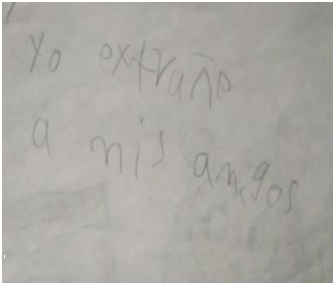 Yo extrañe
a mis amigos